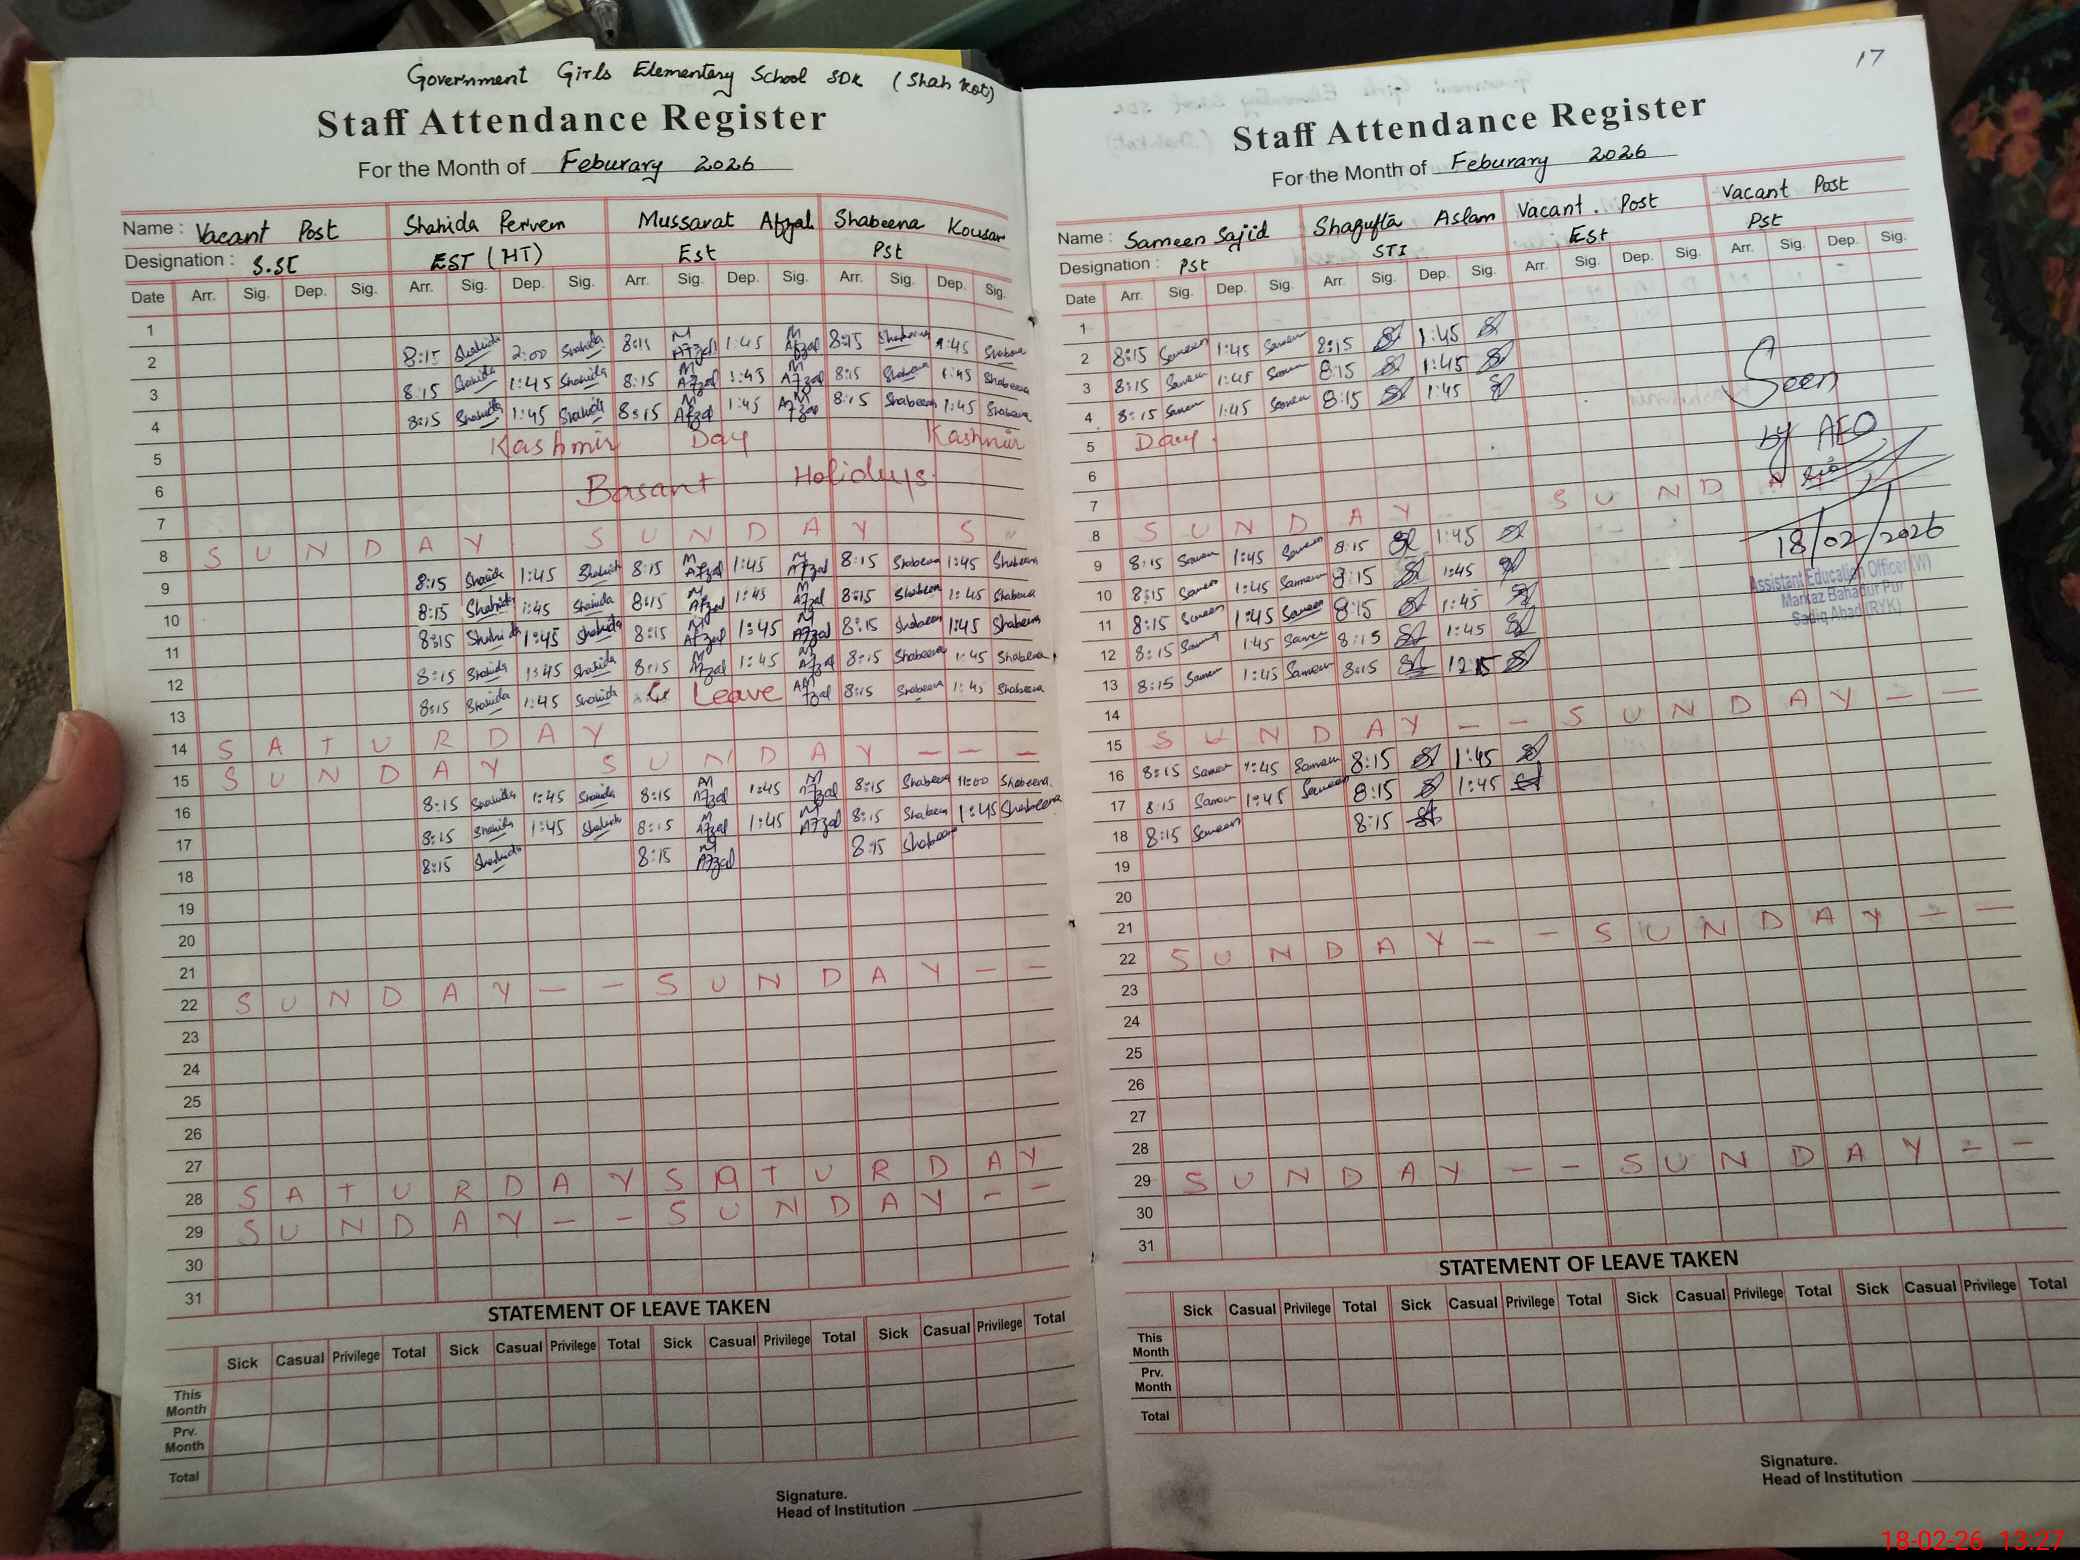 Government Girls Elementary School SDK (Shah Kot)
Staff Attendance Register
For the Month of Feburary 2026
Name : Vacant Post Shahida Perven Mussarat Afzal Shabeena Kousar
Designation : S.SE EST (HT) Est Pst
Date Arr. Sig. Dep. Sig. Arr. Sig. Dep. Sig. Arr. Sig. Dep. Sig. Arr. Sig. Dep. Sig.
1
2 8:15 Shahida 2:00 Shahida 8:15 M Afzal 1:45 M Afzal 8:15 Shabeena 1:45 Shabeena
3 8:15 Shahida 1:45 Shahida 8:15 M Afzal 1:45 M Afzal 8:15 Shabeena 1:45 Shabeena
4 8:15 Shahida 1:45 Shahida 8:15 M Afzal 1:45 M Afzal 8:15 Shabeena 1:45 Shabeena
5 Kashmir Day Kashmir
6 Basant Holidays.
7
8 S U N D A Y S U N D A Y S
9 8:15 Shahida 1:45 Shahida 8:15 M Afzal 1:45 M Afzal 8:15 Shabeena 1:45 Shabeena
10 8:15 Shahida 1:45 Shahida 8:15 M Afzal 1:45 M Afzal 8:15 Shabeena 1:45 Shabeena
11 8:15 Shahida 1:45 Shahida 8:15 M Afzal 1:45 M Afzal 8:15 Shabeena 1:45 Shabeena
12 8:15 Shahida 1:45 Shahida 8:15 M Afzal 1:45 M Afzal 8:15 Shabeena 1:45 Shabeena
13 8:15 Shahida 1:45 Shahida Leave M Afzal 8:15 Shabeena 1:45 Shabeena
14 S A T U R D A Y
15 S U N D A Y S U N D A Y – – –
16 8:15 Shahida 1:45 Shahida 8:15 M Afzal 1:45 M Afzal 8:15 Shabeena 11:00 Shabeena
17 8:15 Shahida 1:45 Shahida 8:15 M Afzal 1:45 M Afzal 8:15 Shabeena 1:45 Shabeena
18 8:15 Shahida 8:15 M Afzal 8:15 Shabeena
19
20
21
22 S U N D A Y – – S U N D A Y – –
23
24
25
26
27
28 S A T U R D A Y S A T U R D A Y
29 S U N D A Y – – S U N D A Y – –
30
31
STATEMENT OF LEAVE TAKEN
Sick Casual Privilege Total Sick Casual Privilege Total Sick Casual Privilege Total Sick Casual Privilege Total
This Month
Prv. Month
Total
Signature.
Head of Institution
17
Staff Attendance Register
For the Month of Feburary 2026
Name : Sameen Sajid Shagufta Aslam Vacant . Post Vacant Post
Designation : Pst STI Est Pst
Date Arr. Sig. Dep. Sig. Arr. Sig. Dep. Sig. Arr. Sig. Dep. Sig. Arr. Sig. Dep. Sig.
1
2 8:15 Sameen 1:45 Sameen 8:15 1:45
3 8:15 Sameen 1:45 Sameen 8:15 1:45
4 8:15 Sameen 1:45 Sameen 8:15 1:45
5 Day.
6
7
8 S U N D A Y - - - S U N D A Y
9 8:15 Sameen 1:45 Sameen 8:15 1:45
10 8:15 Sameen 1:45 Sameen 8:15 1:45
11 8:15 Sameen 1:45 Sameen 8:15 1:45
12 8:15 Sameen 1:45 Sameen 8:15 1:45
13 8:15 Sameen 1:45 Sameen 8:15 12:15
14
15 S U N D A Y – – S U N D A Y – –
16 8:15 Sameen 1:45 Sameen 8:15 1:45
17 8:15 Sameen 1:45 Sameen 8:15 1:45
18 8:15 Sameen 8:15
19
20
21
22 S U N D A Y – – S U N D A Y – –
23
24
25
26
27
28
29 S U N D A Y – – S U N D A Y – –
30
31
Seen
by AEO
18/02/2026
Assistant Education Officer (W)
Markaz Bahadur Pur
Sadiq Abad (RYK)
STATEMENT OF LEAVE TAKEN
Sick Casual Privilege Total Sick Casual Privilege Total Sick Casual Privilege Total Sick Casual Privilege Total
This Month
Prv. Month
Total
Signature.
Head of Institution
18-02-26 13:27